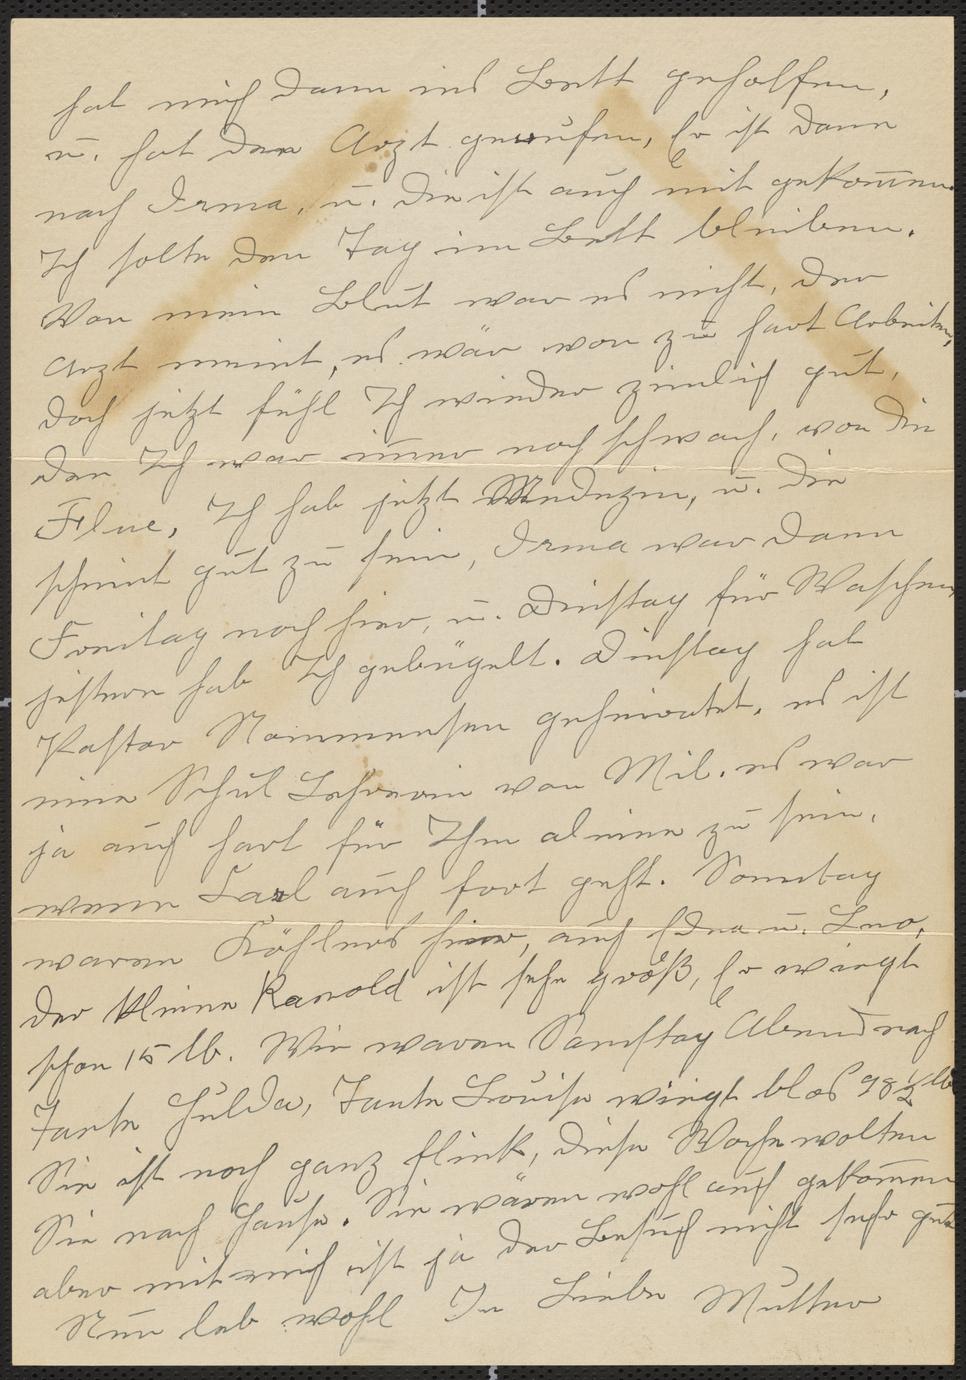 hat mich dann ins Bett geholfen,
u. hat den Arzt gerufen, Er ist dann
nach Irma, u. die ist auch mit gekommen.
Ich solte den Tag im Bett bleiben.
Von mein Blut war es nicht, der
Arzt meint, es wär von zu hart Arbeiten,
doch jetzt fühl Ich wieder zimlich gut,
den Ich war immer noch schwach, von die
Flue, Ich hab jetzt Medezin, u. die
scheint gut zu sein, Irma war dann
Freitag noch hier, u. Dinstag für Waschen,
jestern hab Ich gebügelt. Dinstag hat
Pastor Nommensen geheiratet, es ist
eine Schul Lehrerin von Mil. es war
ja auch hart für Ihm aleine zu sein,
wenn Carl auch fort geht. Sonntag
waren Köhlers hier, auch Edna u. Leo,
der kleine Ranold ist sehr größ, Er wiegt
schon 15 lb. Wir waren Samstag Abend nach
Tante Hulda, Tante Louise wiegt blos 98½ lb
Sie ist noch ganz flink, diese Woche wolten
Sie nach Hause. Sie wären wohl auch gekommen
aber mit mich ist ja der Besuch nicht sehr gut
Nun leb wohl In Liebe Mutter